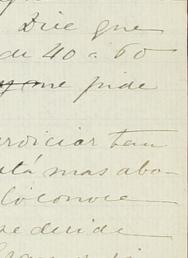 Dice que
de 40 a 60
y me pide
erdiciar tan
stá mas abo-
lo conoce
se decide